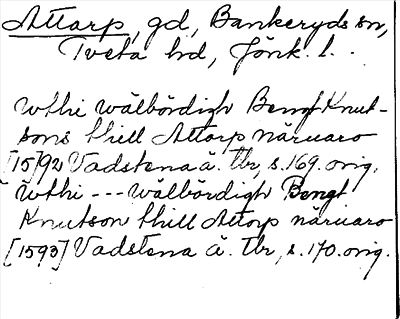 Attarp, gd, Bankeryds sn,
Tveta hd, Jönk. l.
wthi wälbördigh Bengt Knut-
sons thill Attorp näruaro
[15]92 Vadstena ä. Tbr, s. 169. orig.
wthi --- wälbördigh Bengt
Knutson thill Attorp näruaro
[1593] Vadstena ä. Tbr, s. 170. orig.